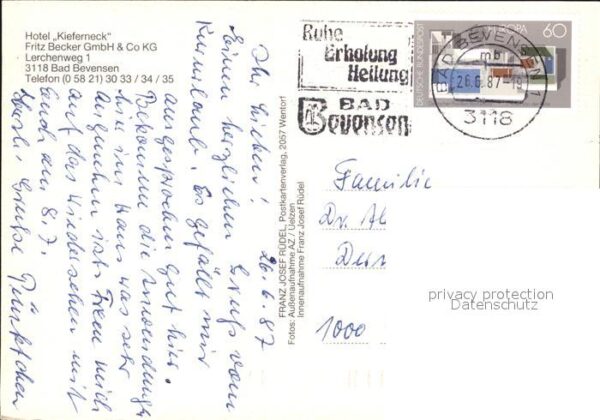 Hotel „Kieferneck"
Fritz Becker GmbH & Co KG
Lerchenweg 1
3118 Bad Bevensen
Telefon (0 58 21) 30 33 / 34 / 35
26.6.87
Ihr Lieben!
Einen herzlichen Gruß vom
Kururlaub. Es gefällt mir
ausgesprochen gut hier.
Bekomme die Anwendungen
hier im Haus was sehr
angenehm ist. Freu mich
auf das Wiedersehen mit
Euch am 8.7.
Herzl. Grüße
FRANZ JOSEF RÜDEL, Postkartenverlag, 2057 Wentorf
Fotos: Außenaufnahme AZ / Uelzen
Innenaufnahme Franz Josef Rüdel
Ruhe
Erholung
Heilung
BAD
Bevensen
DEUTSCHE BUNDESPOST
EUROPA
60
BAD BEVENSEN 1
mb
26.6.87-19
3118
Familie
Dr.
1000
privacy protection
Datenschutz